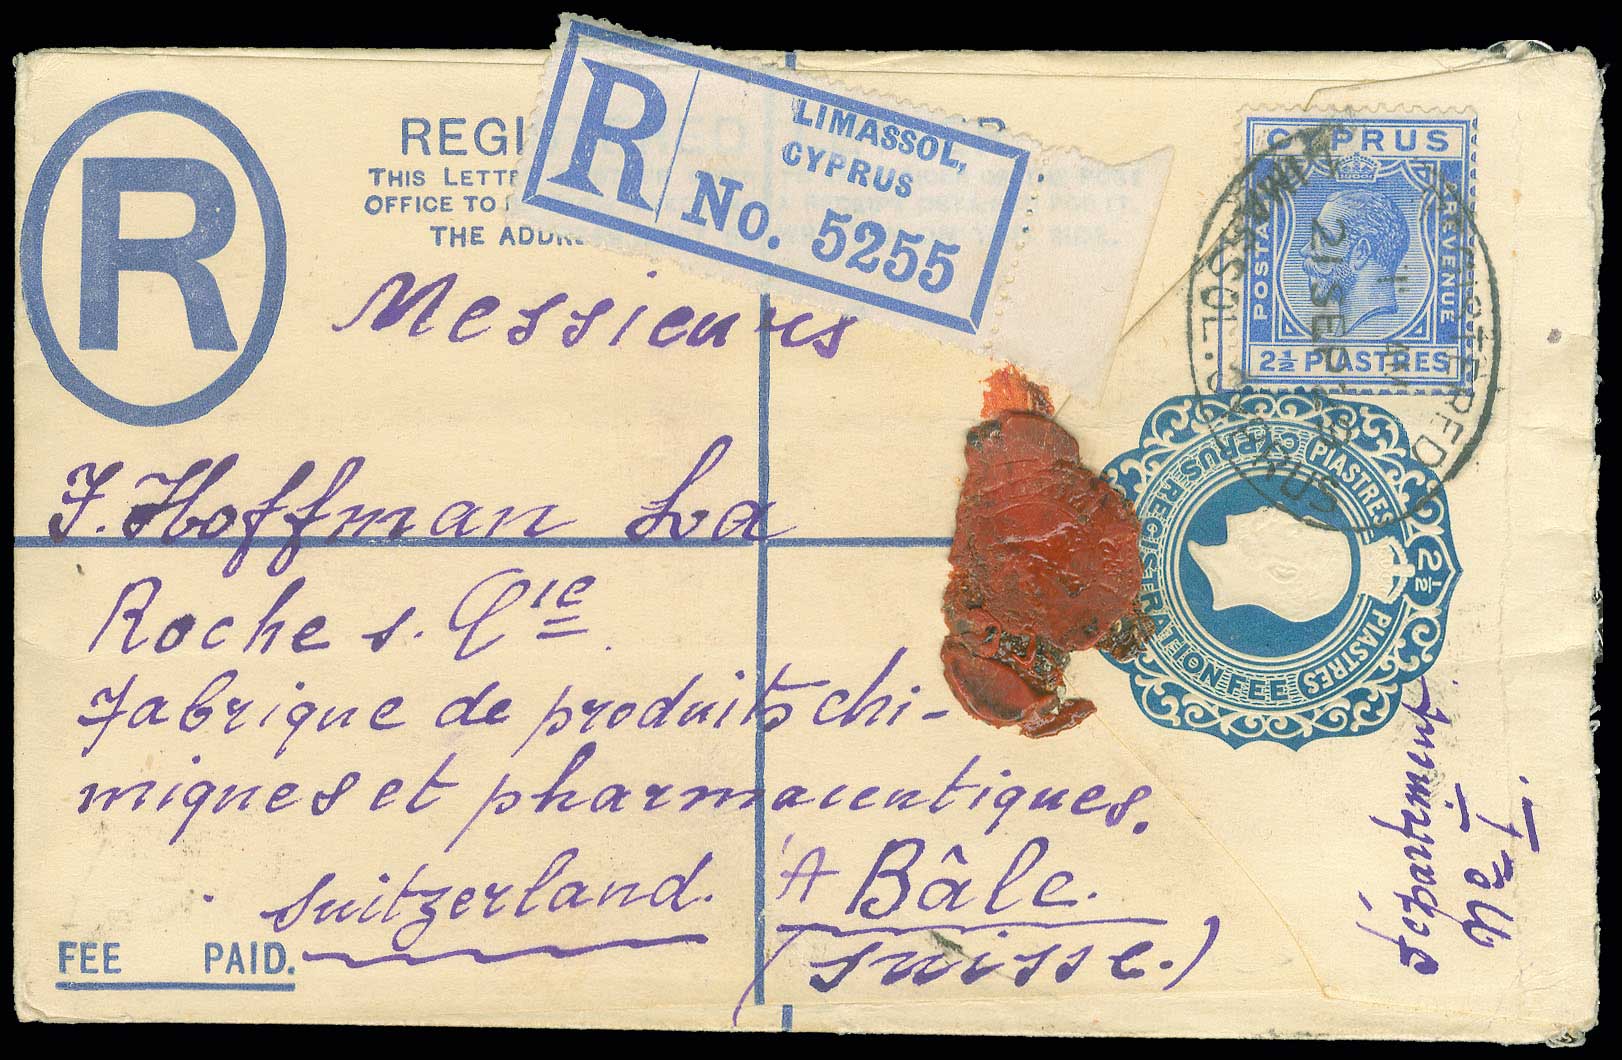 R
REGI
THIS LETTE
OFFICE TO
THE ADDRE
R
LIMASSOL,
CYPRUS
No. 5255
CYPRUS
POSTAGE
REVENUE
2½ PIASTRES
REGISTERED
LIMASSOL. CYPRUS
21 SEP
CYPRUS REGISTRATION FEE
PIASTRES
2½
PIASTRES
Messieurs
F. Hoffman La
Roche s. Cie
Fabrique de produits chi-
miques et pharmaceutiques.
'A Bâle.
Suitzerland.
(Suisse.)
Département
No I.
FEE PAID.